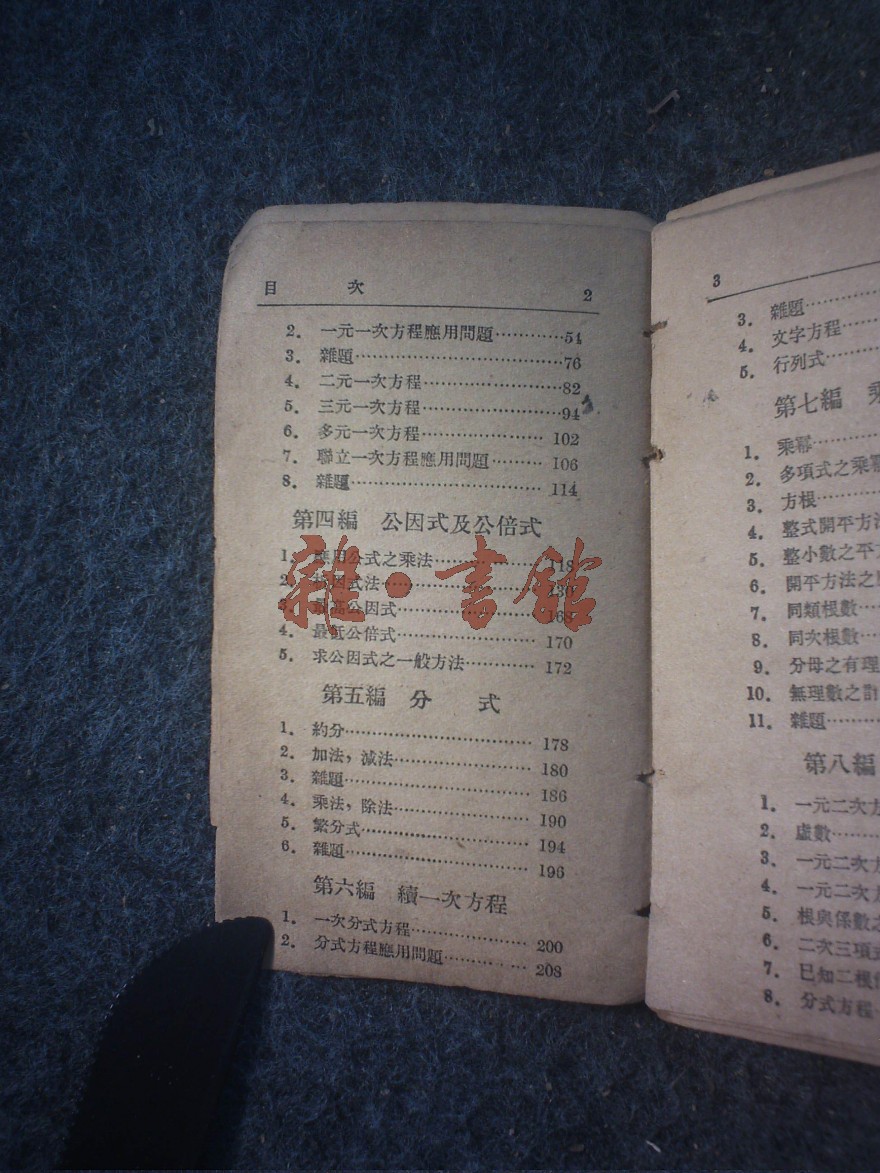 目 次 2
2. 一元一次方程應用問題…………54
3. 雜題…………………………………76
4. 二元一次方程………………………82
5. 三元一次方程………………………94
6. 多元一次方程…………………… 102
7. 聯立一次方程應用問題……… 106
8. 雜題………………………………… 114
第四編 公因式及公倍式
1. 應用公式之乘法…………………118
2. 析因式法…………………………130
3. 最高公因式………………………168
4. 最低公倍式……………………… 170
5. 求公因式之一般方法………… 172
雜·書館
第五編 分 式
1. 約分……………………………… 178
2. 加法,減法……………………… 180
3. 雜題……………………………… 186
4. 乘法,除法……………………… 190
5. 繁分式…………………………… 194
6. 雜題……………………………… 196
第六編 續一次方程
1. 一次分式方程………………… 200
2. 分式方程應用問題…………… 208
3
3. 雜題
4. 文字方程
5. 行列式
第七編 乘
1. 乘冪
2. 多項式之乘冪
3. 方根
4. 整式開平方法
5. 整小數之平方
6. 開平方法之
7. 同類根數
8. 同次根數
9. 分母之有理
10. 無理數之計
11. 雜題
第八編
1. 一元二次方
2. 虛數
3. 一元二次方
4. 一元二次
5. 根與係數之
6. 二次三項式
7. 已知二根
8. 分式方程